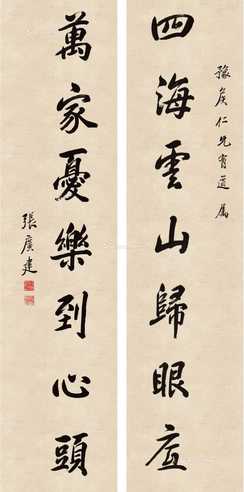 豫矦仁兄有道屬
四海雲山歸眼底
萬家憂樂到心頭
張廣建